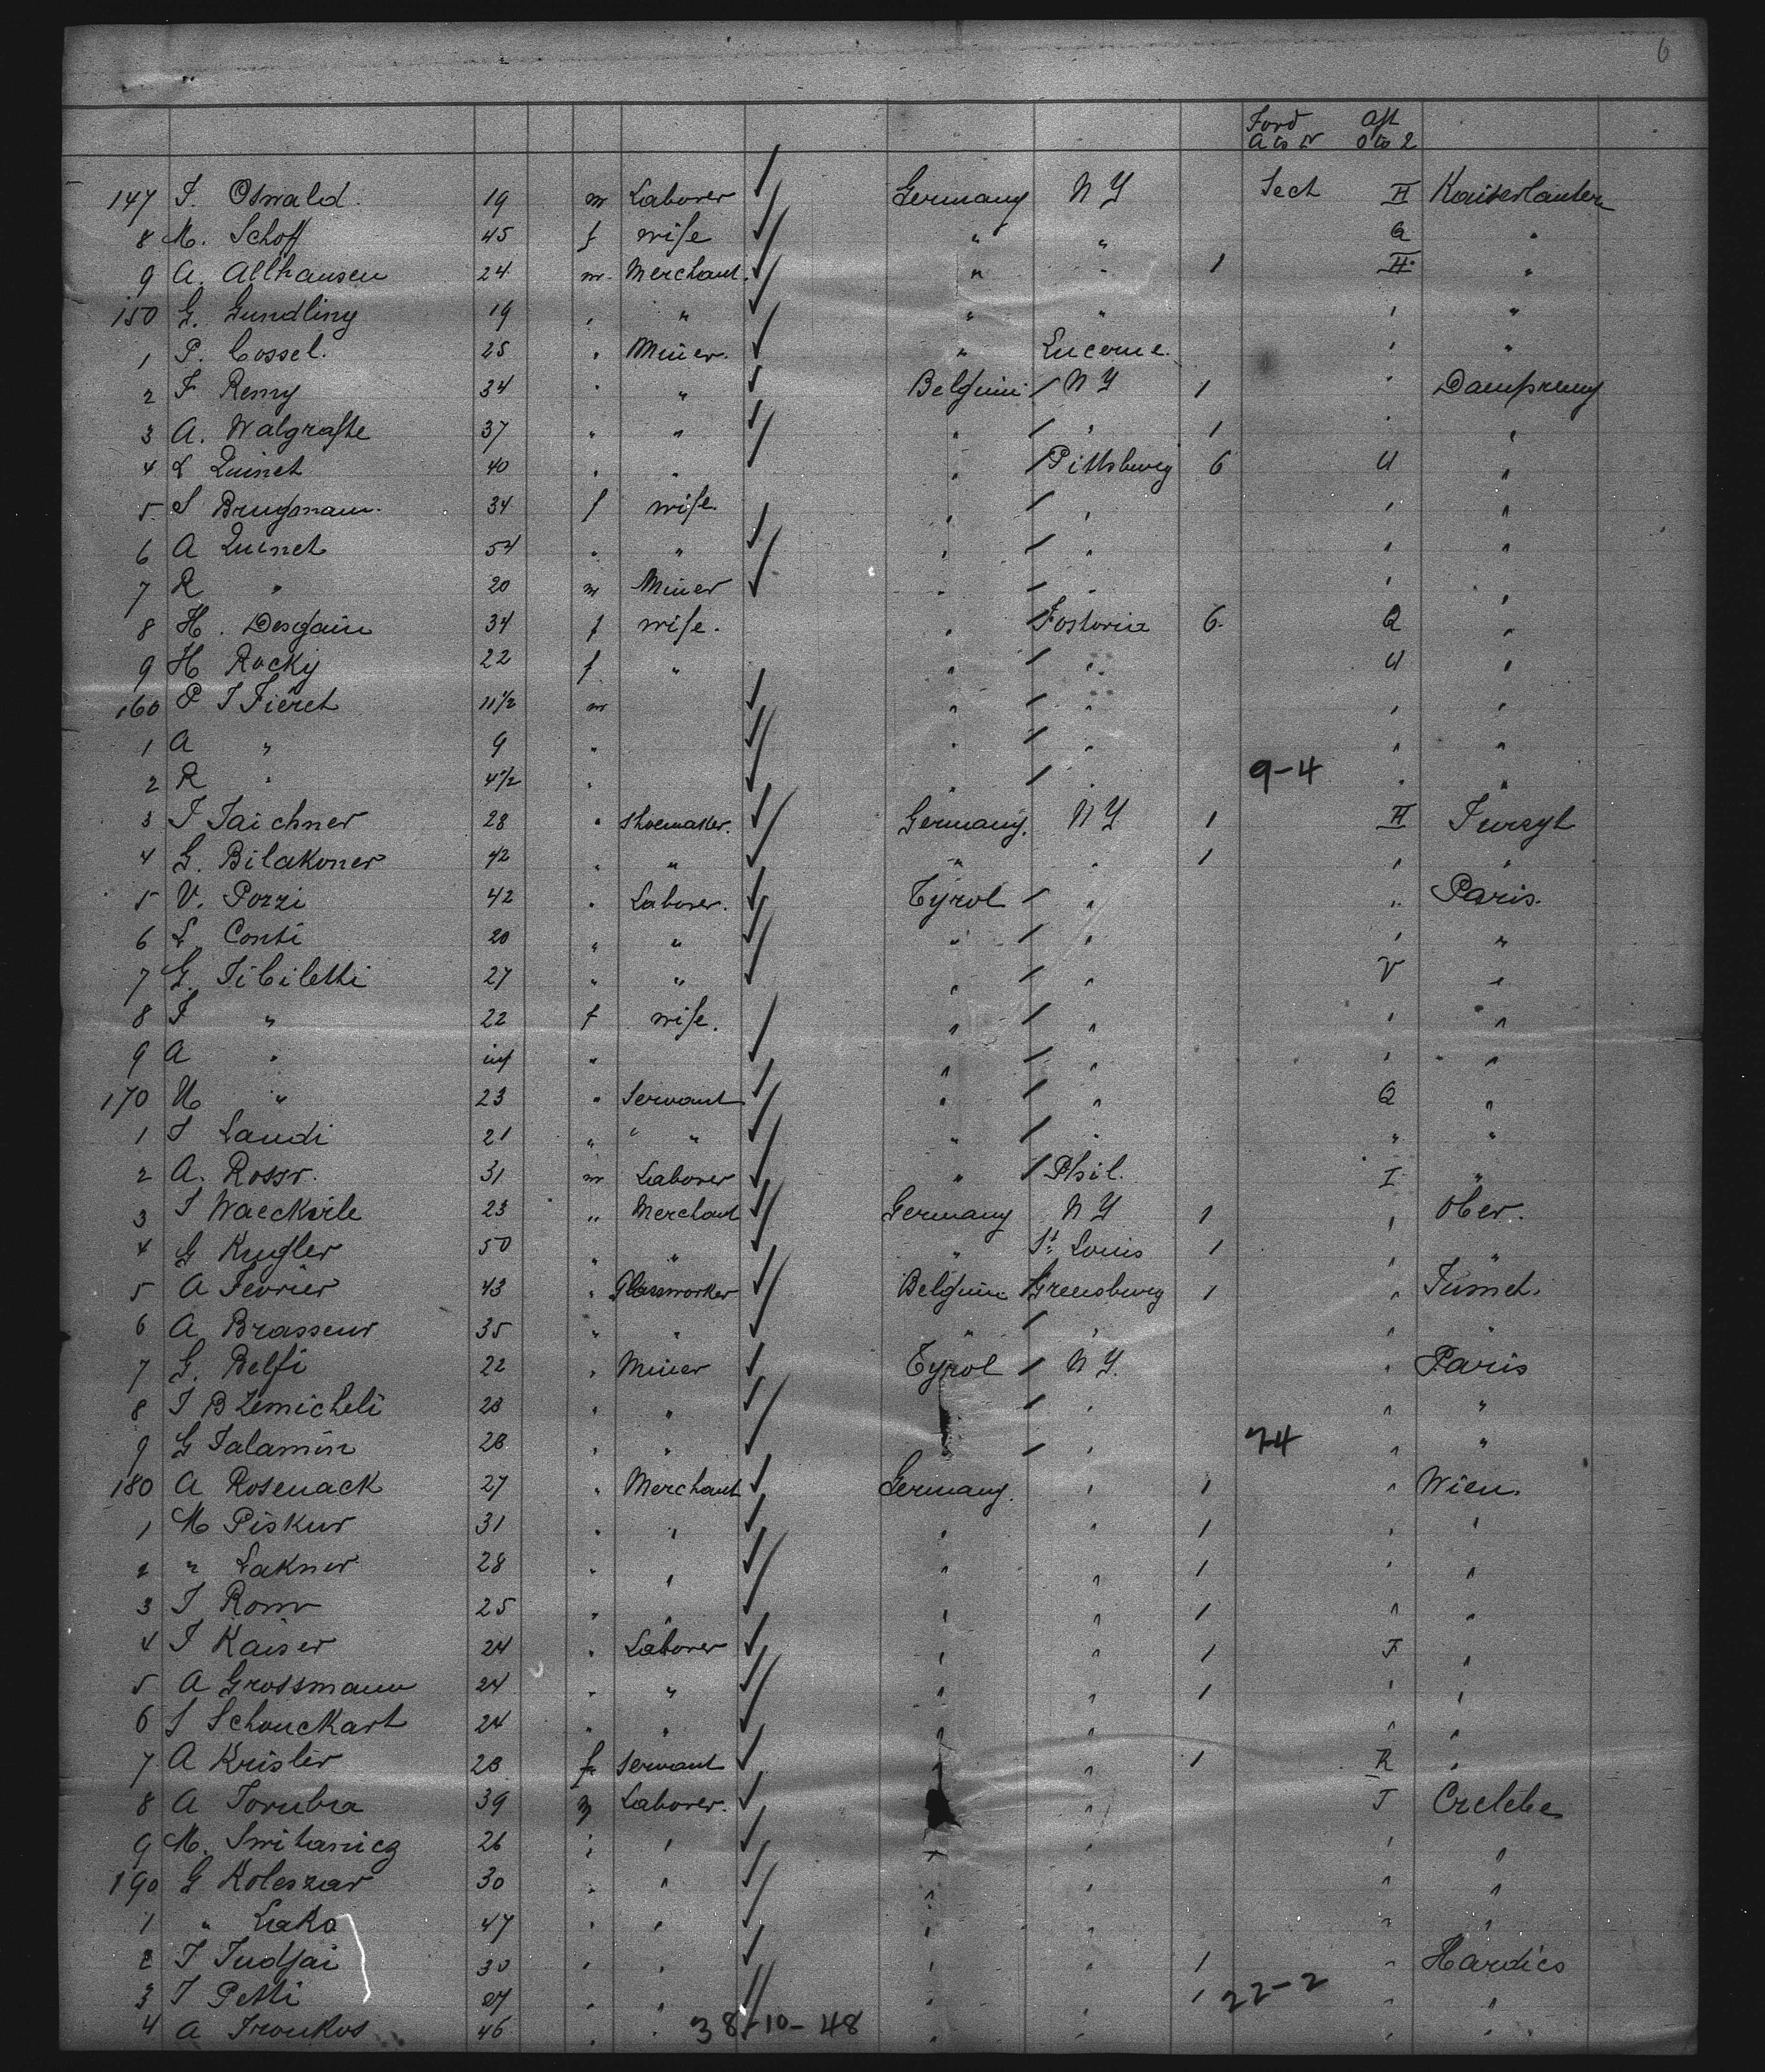 6
Ford Aft
A to N O to Z
147 J. Oswald 19 m Laborer Germany N Y Sect H Kaiserlautern
8 M. Schoff 45 f wife " " G "
9 A. Allhausen 24 m Merchant " " 1 H "
150 G. Gundling 19 " " " " " "
1 P. Cossel. 25 " Miner. " Lucerne. " "
2 F Remy 34 " " Belgium / N Y 1 " Dampremy
3 A. Walgraffe 37 " " " / " 1 " "
4 L Quinet 40 " " " / Pittsburg 6 U "
5 S Brugmann. 34 f wife " / " " "
6 A Quinet 54 " " " / " " "
7 R " 20 m Miner " / " " "
8 H. Desgain 34 f wife. " / Fostoria 6 Q "
9 H Rocky 22 f " " / " U "
160 P J Fieret 11 1/2 m " / " " "
1 A " 9 " " / " " "
2 R " 4 1/2 " " / " 9-4 " "
3 J Taichner 28 " Shoemaker. Germany. N Y 1 H
4 G. Bilakoner 42 " " " " 1 " "
5 V. Pozzi 42 " Laborer. Tyrol / " " Paris.
6 L Conti 20 " " " / " " "
7 G. Tibiletti 27 " " " / " V "
8 F " 22 f wife. " / " " "
9 A " inf " " / " " "
170 " 23 " Servant " / " Q "
1 J Landi 21 " " " / " " "
2 A. Rossr. 31 m Laborer " / Phil. I "
3 J Waeckerle 23 " Merchant Germany N Y 1 " Ober.
4 G Kugler 50 " " " St. Louis 1 " "
5 A Fevrier 43 " Glassworker Belgium / Greensburg 1 " Jumet.
6 A Brasseur 35 " " " / " " "
7 G. Belfi 22 " Miner Tyrol / N Y. " Paris
8 J B Zemicheli 28 " " / " " "
9 G Salamin 28 " " / " 7-4 " "
180 A Rosenack 27 " Merchant Germany. " 1 " Wien.
1 M Piskur 31 " " " " 1 " "
2 " Lakner 28 " " " " 1 " "
3 J Rom 25 " " " " 1 " "
4 J Kaiser 24 " Laborer " " 1 F "
5 A Grossmann 24 " " " " 1 " "
6 S Schouckart 24 " " " " " "
7 A Krisler 28 f Servant " " 1 R "
8 A Torubra 39 m Laborer. " J
9 M. Switanicz 26 " " " " " "
190 G Koleszar 30 " " " " " "
1 " Lako 47 " " " " " "
2 J Judjai 30 " " " " 1 " Hardics
3 J Petti 27 " " " " 1 22-2 " "
4 A Tronkos 46 " " 38-10-48 " " " "